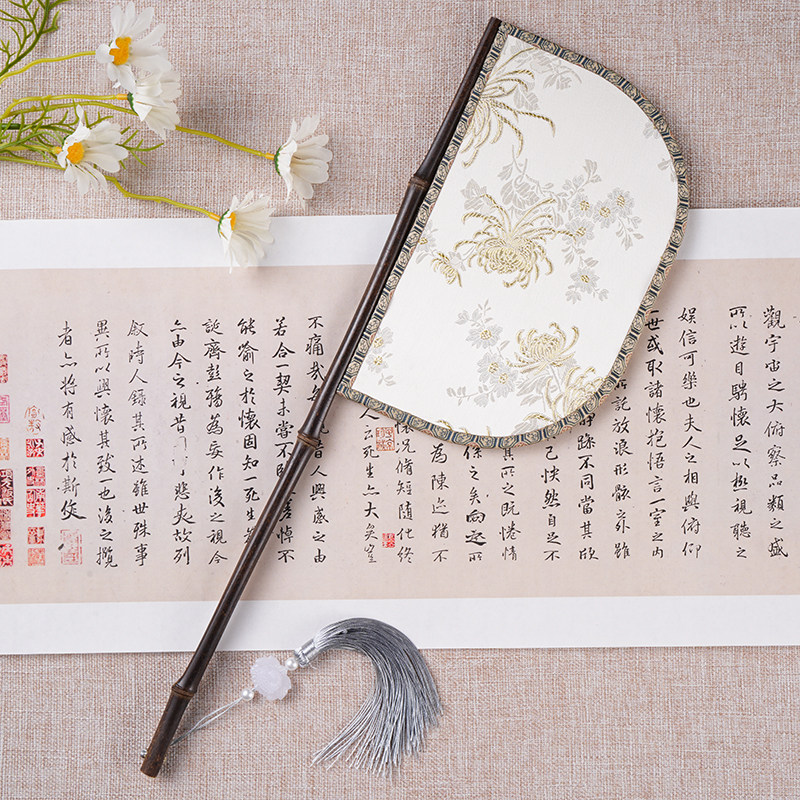 觀宇宙之大俯察品類之盛
所以遊目騁懷足以極視聽之
娛信可樂也夫人之相與俯仰
一世或取諸懷抱悟言一室之內
所託放浪形骸之外雖
躁不同當其欣
己怏然自足不
其所之既惓情
係之矣向之所
為陳迹猶不
懷況脩短隨化終
人云死生亦大矣豈
不痛哉每昔人興感之由
若合一契未嘗不臨嗟悼不
能喻之於懷固知一死生
誕齊彭殤為妄作後之視今
亦由今之視昔悲夫故列
敘時人錄其所述雖世殊事
異所以興懷其致一也後之攬
者亦將有感於斯文